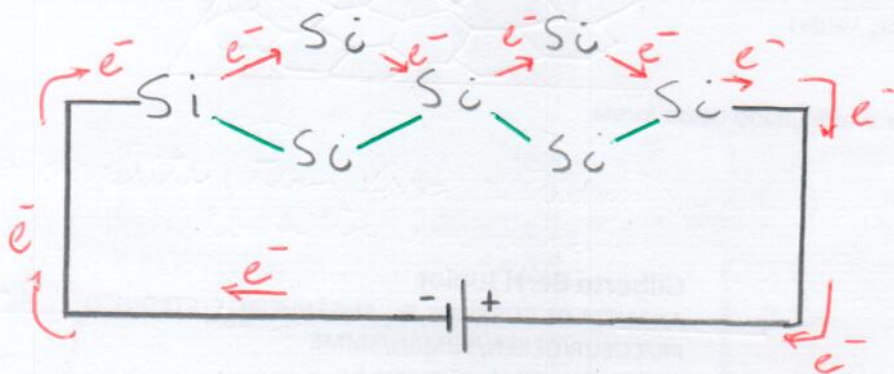 e⁻ Si e⁻ e⁻ Si e⁻
e⁻ Si Si Si e⁻ e⁻
Si Si
e⁻ e⁻
- +
e⁻